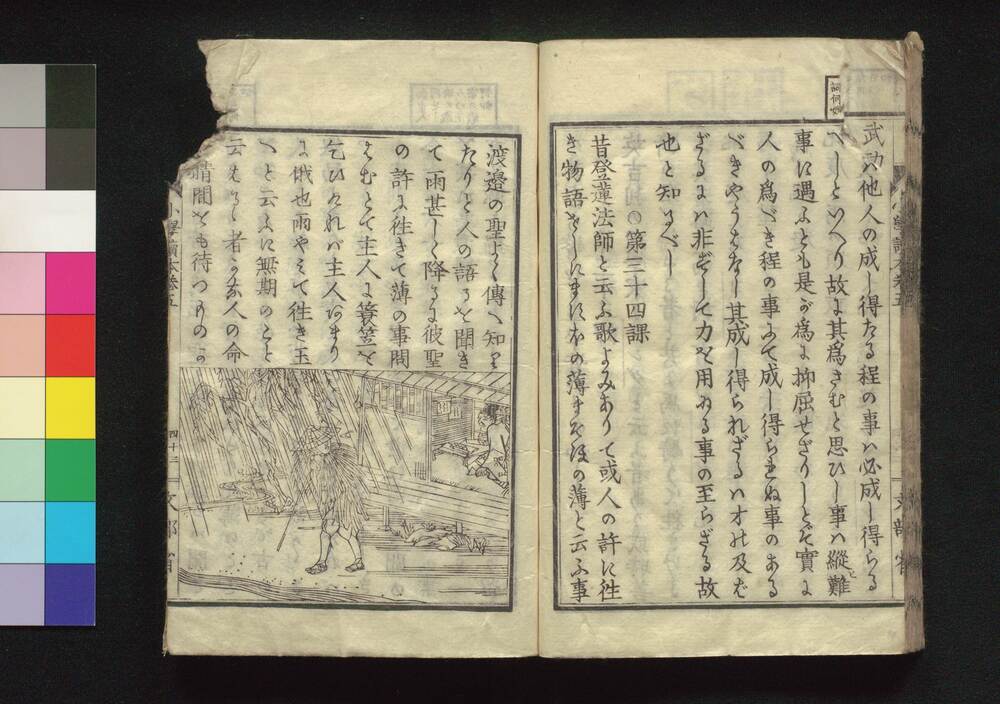 武功他人の成し得たる程の事ハ必成し得らる
べしといへり故に其爲さむと思ひし事ハ縱難
事に遇ふとも是が爲に抑屈せざりしとぞ實に
人の爲べき程の事にて成し得られぬ事のある
べきやうもなし其成し得られざるハ才の及ば
ざるにハ非ずして力を用ゐる事の至らざる故
也と知るべし
○第三十四課
昔登蓮法師と云ふ歌よみありて或人の許に徃
き物語せしにますほの薄まそほの薄と云ふ事
渡邉の聖よく傳へ知り
たりと人の語るを聞き
て雨甚しく降るに彼聖
の許に徃きて薄の事問
はむとて主人に簔笠を
乞ひければ主人あまり
に俄也雨やみて徃き玉
へと云ふに無期のこと
云もるし者かな人の命
晴間をも待つものか
小學讀本卷五
四十三
文部省
小學讀本卷五
文部省